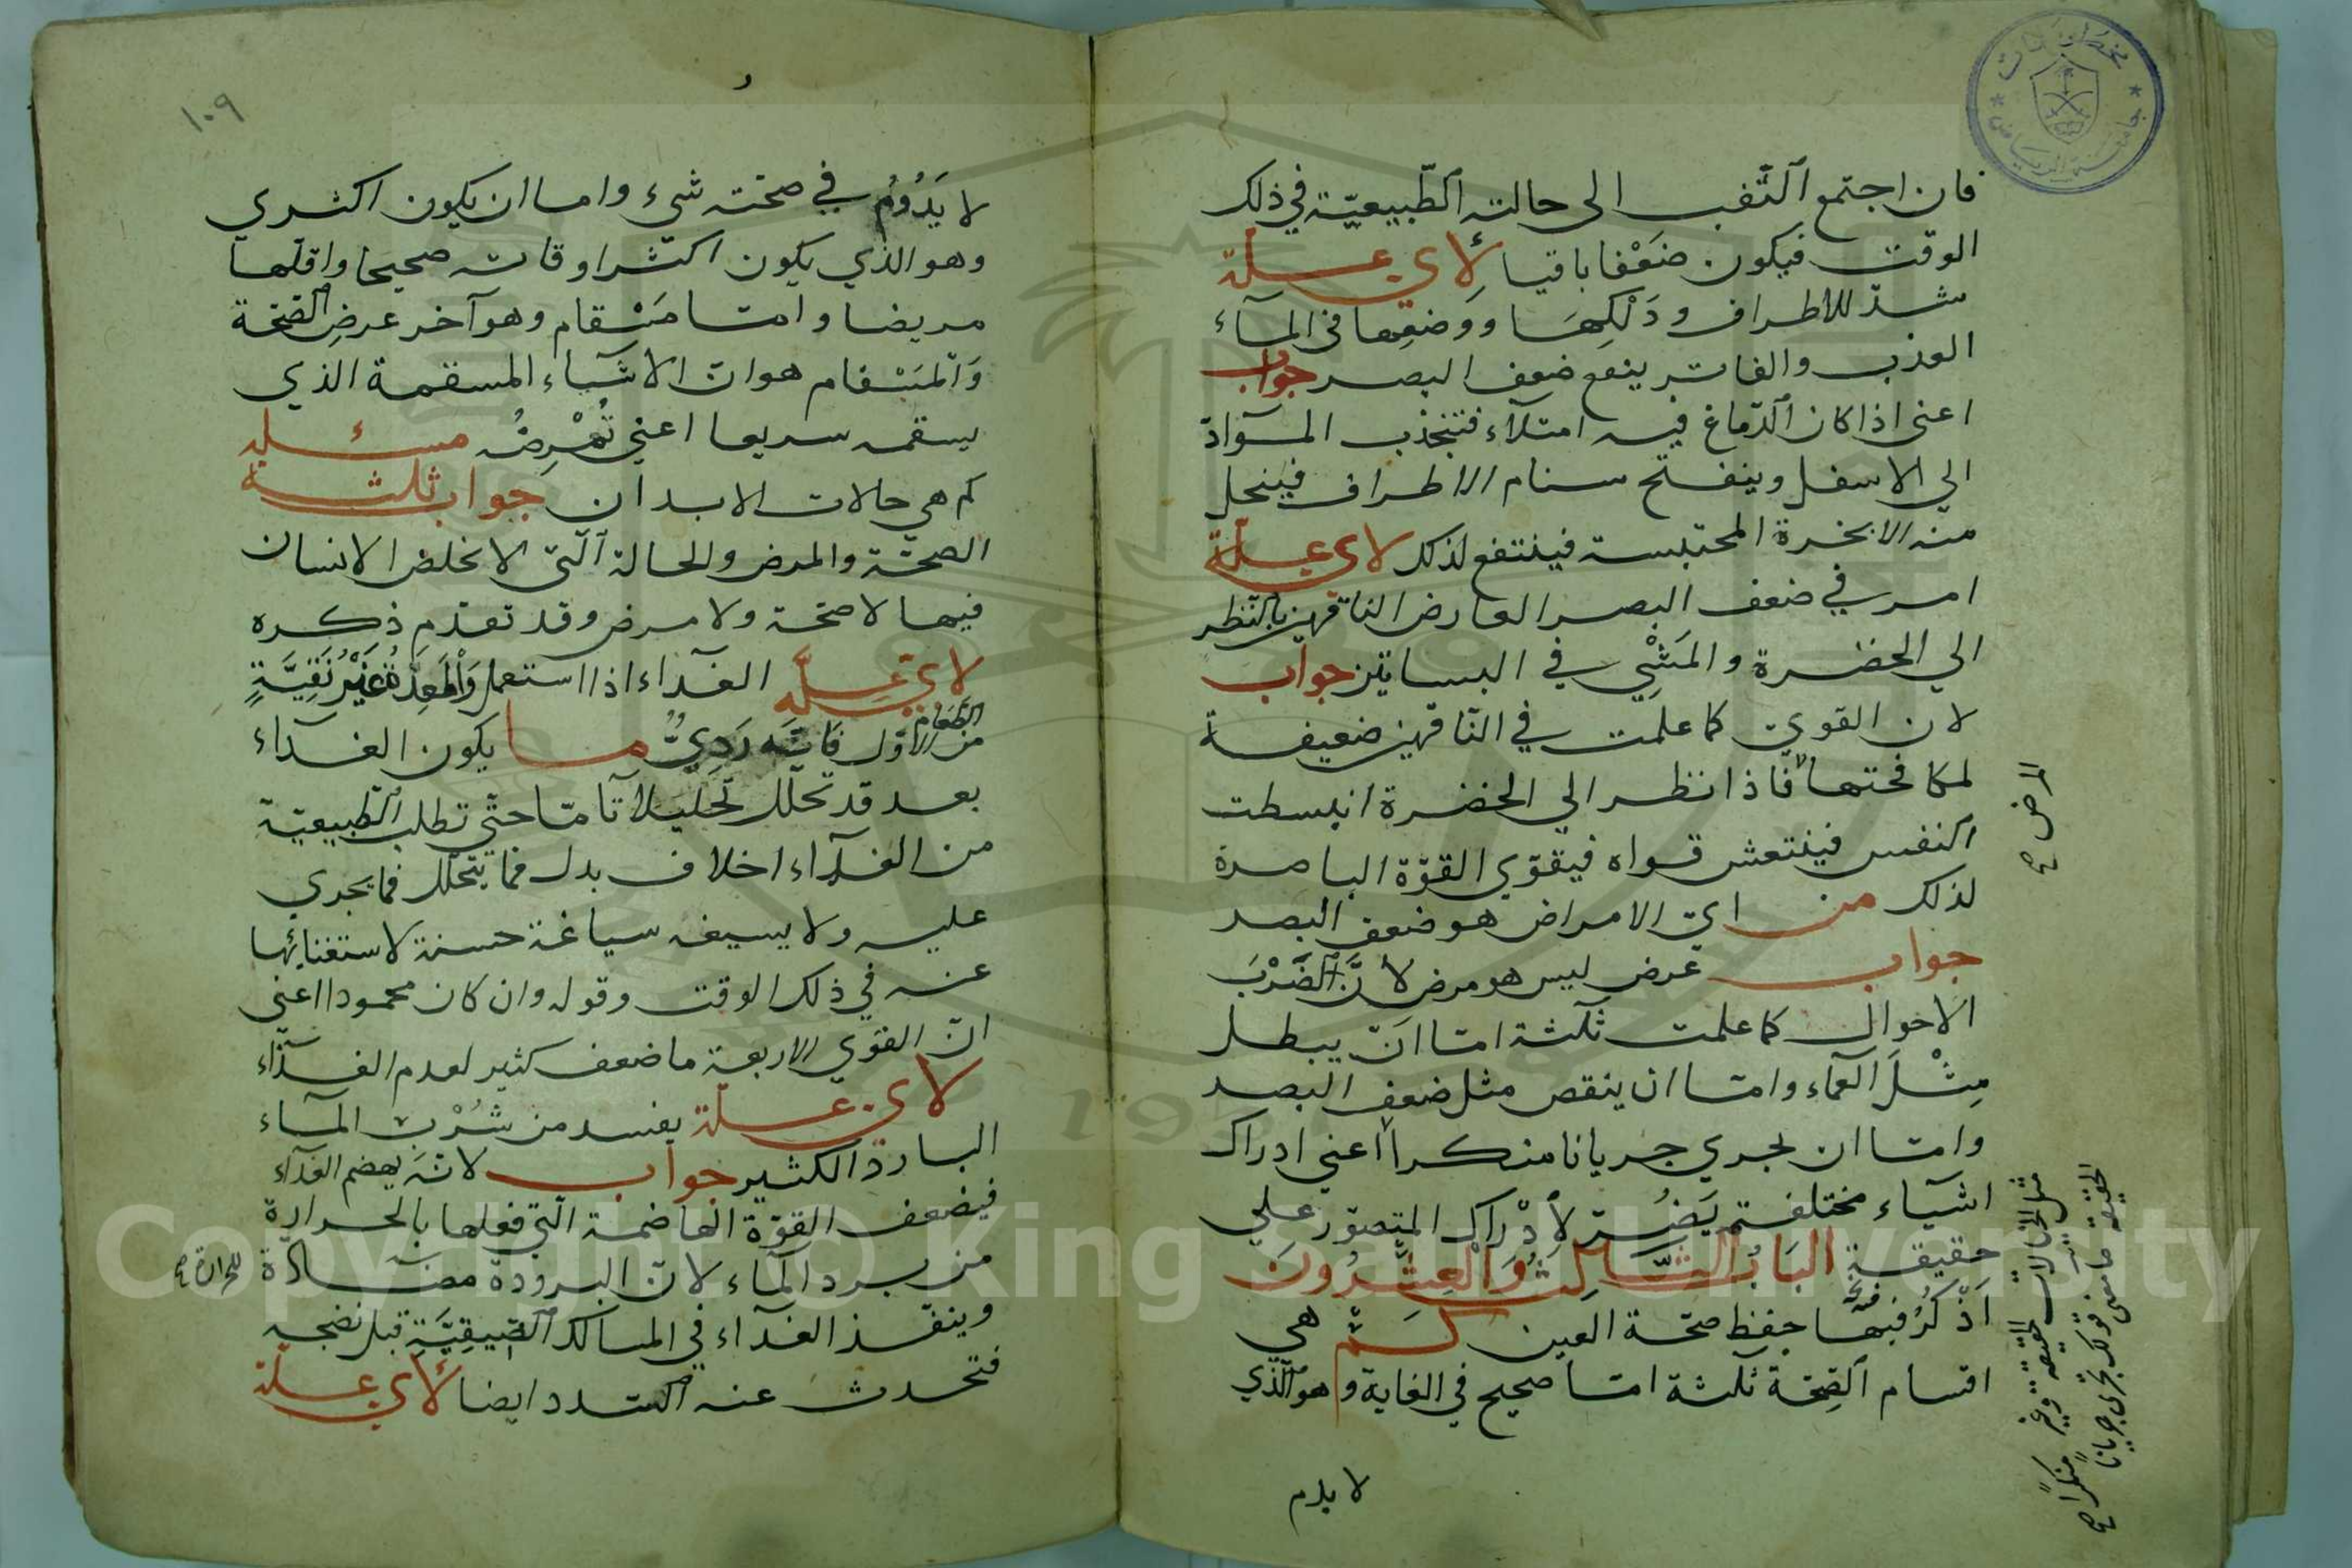 فان اجتمع التّعب الى حالته الطّبيعيّة في ذلك
الوقت فيكون ضَعْفا باقيا لأي علّة
شدّ للاطراف ودَلْكِهَا ووضعِها في المآء
العذب والفاتر ينفع ضعف البصر جواب
اعني اذا كان الدّماغ فيه امتلآء فتنجذب الموآدّ
الي الاسفل وينفتح مسام الاطراف فينحل
منه الابخرة المحتبسة فينتفع لذلك لاي علّة
امر في ضعف البصر العارض الناقهين بالنّظر
الي الخضرة والمَشْيِ في البساتين جواب
لان القوي كما علمت في النّاقهين ضعيفة
لمكافحتها فاذا نظر الي الخضرة انبسطت
النفس فينتعش قواه فيقوّي القوّة الباصرة
لذلك من ايّ الامراض هو ضعف البصر
جواب عرض ليس هو مرض لأنَّ الضَّرْبَ
الاحوال كما علمت ثلثة امّا انّ يبطل
مِثْلَ العماء وامّا ان ينقص مثل ضعف البصر
وامّا ان يجري جريانا منكرا اعني ادراك
اشيآء مختلفة يَضُرّ لادْراك المتصوّر علي
حقيقة البَابُ الثَّالِثُ وَالْعِشْرُونَ
اَذْكُرُ فيهَا حفظ صحّة العين كم هي
اقسام الصّحّة ثلثة امّا صحيح في الغاية وهو الّذي
لا يدم
المرض صح
مثل الخيالات الحقيقة وغير
الحقيقة ما معنى قولك يجري جريانا
منكرًا صح
١٠٩
لا يَدُوُمُ في صحّته شيء واما ان يكون اكثري
وهو الذي يكون اكثر اوقاته صحيحا واقلّها
مريضا وامّا مَسْقام وهو آخر عرض الصّحّة
وَالْمَسْقام هو انّ الاشيآء المسقمة الذي
يسقمه سريعا اعني تُمْرِضُه مسئله
كم هي حالات الابدان جواب ثلثة
الصحّة والمرض والحالة الّتي لا تخلص الانسان
فيها لا صحّة ولا مرض وقد تقدّم ذكره
لاي علّه الغدآء اذا استعمل وَالْمَعِدَةُ غَيْرُ نَقِيَّةٍ
الطَّعَام
من الاوّل فانّه رَدِيٌّ ما يكون الغدآء
بعد قد تحلّل تحليلا تآمّا حتّي تطلب الطّبيعيّة
من الغدآء اخلاف بدل فما يتحلّل فما يجري
عليه ولا يسيغه سياغة حسنة لاستغنائها
عنه في ذلك الوقت وقوله وان كان محمودا اعني
انّ القوي الاربعة ما ضعف كثير لعدم الغدآء
لاي علّة يفسد من شُرْب المآء
البارد الكثير جواب لانّه يهضم الغدآء
فيضعف القوّة الهاضمة الّتي فعلها بالحرارة
من برد المآء لانّ البرودة مضآدّة
للحرارة صح
وينفّذ الغدآء في المسالك الضّيقِيَّةِ قبل نضجه
فتحدث عنه السّدد ايضا لأي علّة
مخطوطات
جامعة الرياض
Copyright © King Saud University
1957